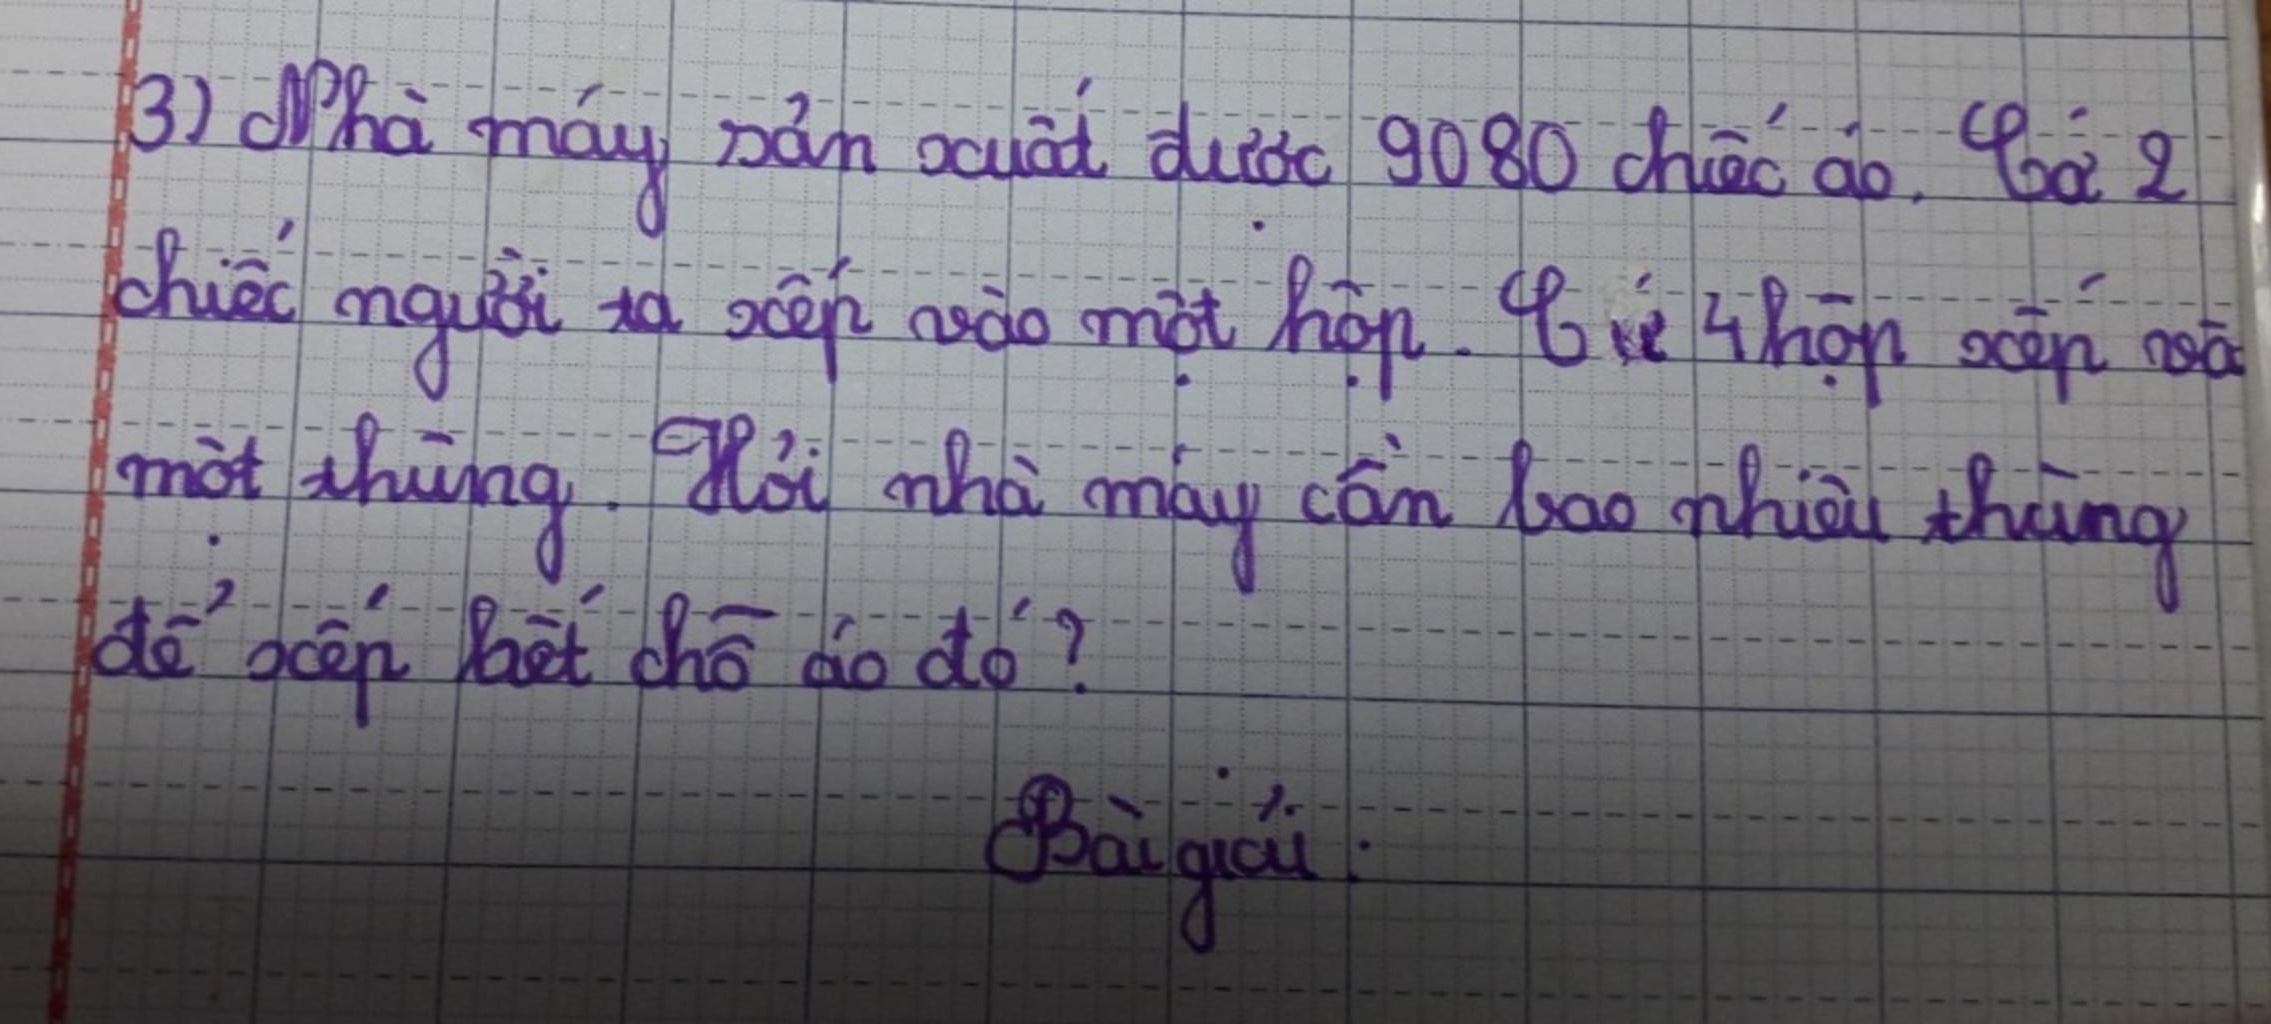 3) Nhà máy sản xuất được 9080 chiếc áo. Cứ 2
chiếc người ta xếp vào một hộp. Cứ 4 hộp xếp và
một thùng. Hỏi nhà máy cần bao nhiêu thùng
để xếp hết chỗ áo đó?
Bài giải: